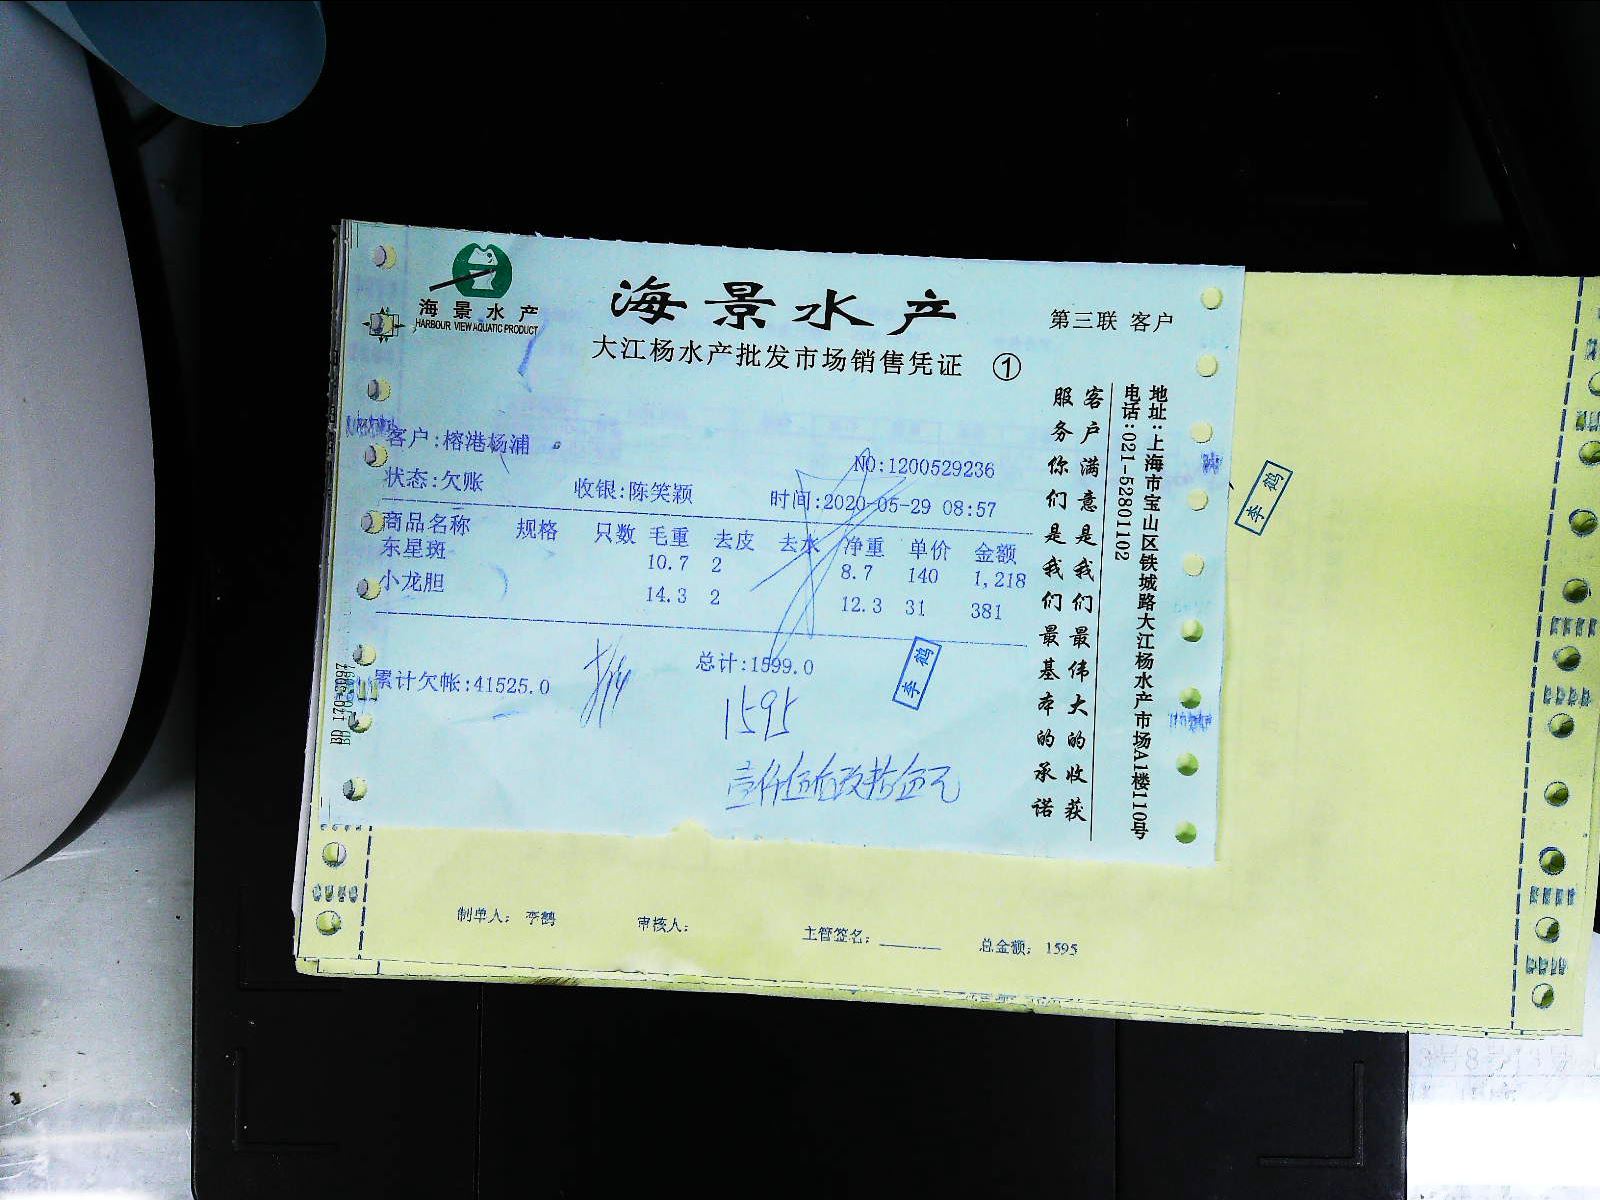 海景水产
HARBOUR VIEW AQUATIC PRODUCT
海景水产
第三联 客户
大江杨水产批发市场销售凭证 ①
客户:榕港杨浦
NO:1200529236
状态:欠账 收银:陈笑颖 时间:2020-05-29 08:57
商品名称 规格 只数 毛重 去皮 去水 净重 单价 金额
东星斑 10.7 2 8.7 140 1,218
小龙胆 14.3 2 12.3 31 381
总计:1599.0
累计欠帐:41525.0
1595
李鹤
客户满意是我们最伟大的收获
服务你们是我们最基本的承诺
地址:上海市宝山区铁城路大江杨水产市场A1楼110号
电话:021-52801102
李鹤
制单人: 李鹤 审核人: 主管签名: 总金额: 1595